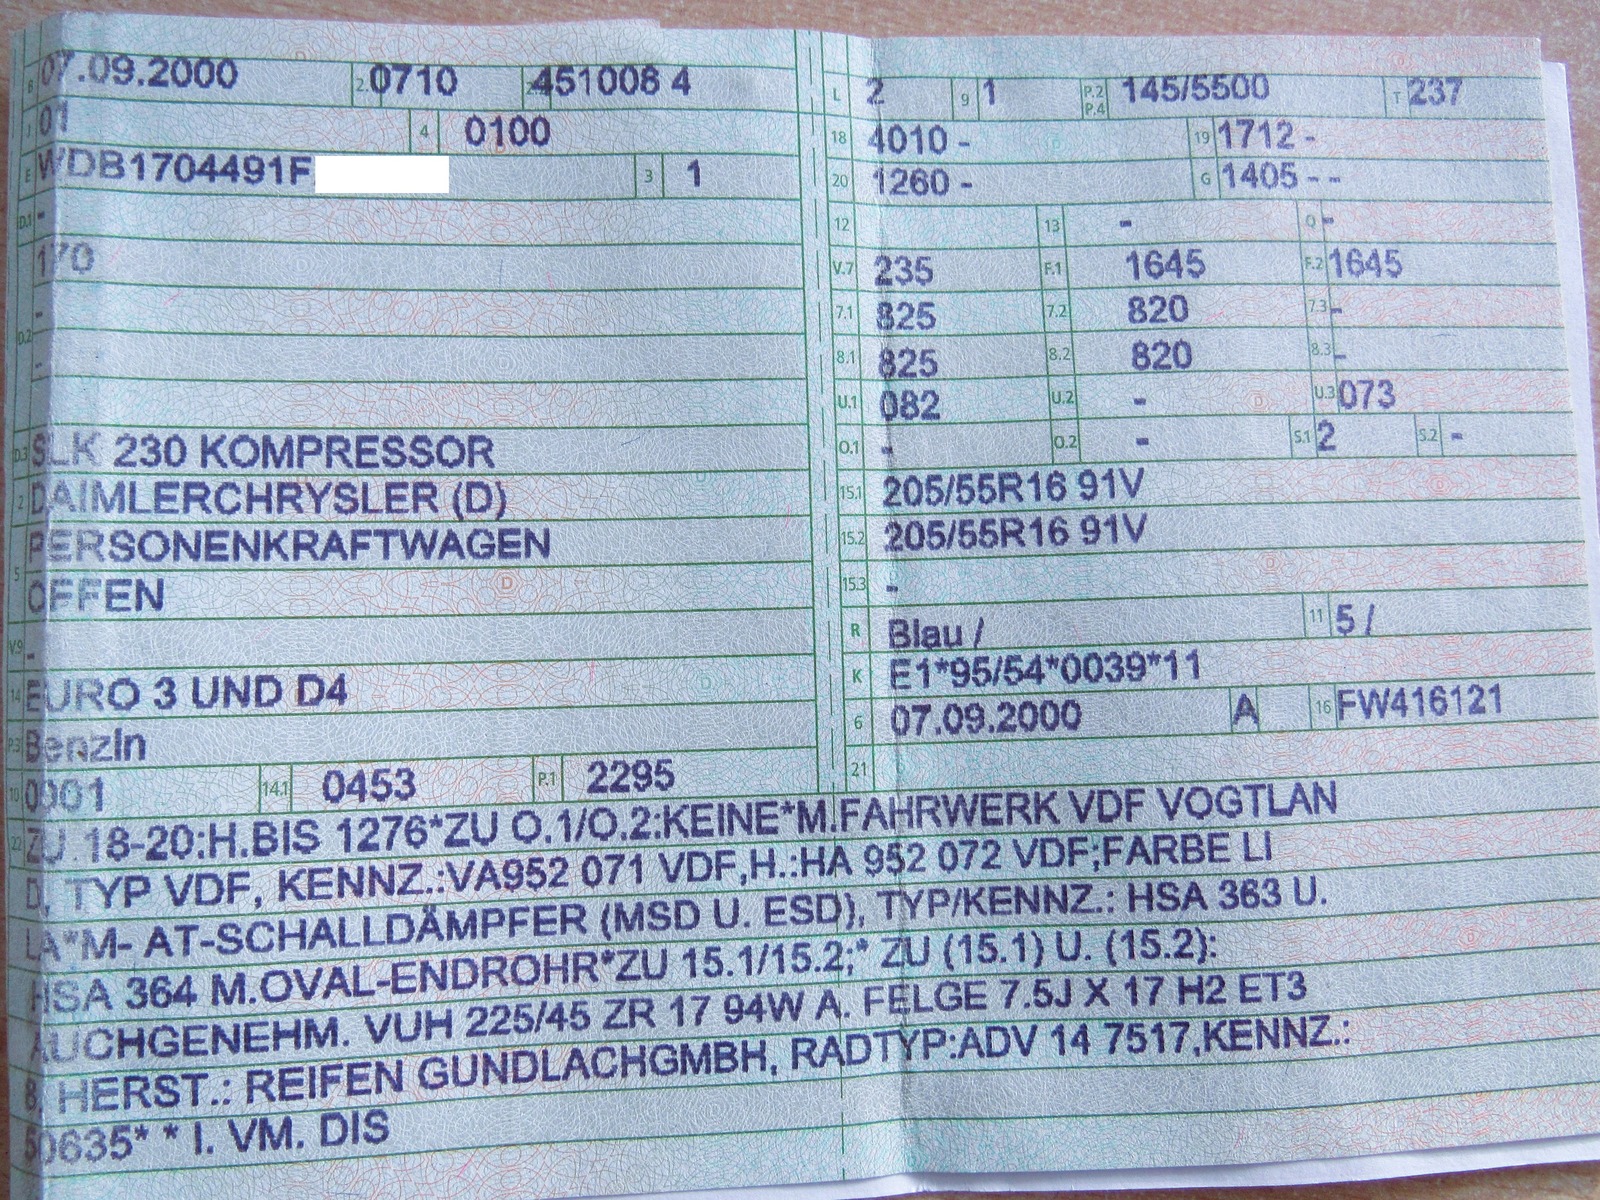 B 07.09.2000 2.1 0710 2.2 451008 4
J 01 4 0100
E WDB1704491F 3 1
D.1 -
170
D.2 -
-
D.3 SLK 230 KOMPRESSOR
2 DAIMLERCHRYSLER (D)
5 PERSONENKRAFTWAGEN
OFFEN
V.9 -
14 EURO 3 UND D4
P.3 Benzin
10 0001 14.1 0453 P.1 2295
L 2 9 1 P.2 P.4 145/5500 T 237
18 4010 - 19 1712 -
20 1260 - G 1405 - -
12 13 - Q -
V.7 235 F.1 1645 F.2 1645
7.1 825 7.2 820 7.3 -
8.1 825 8.2 820 8.3 -
U.1 082 U.2 - U.3 073
O.1 - O.2 - S.1 2 S.2 -
15.1 205/55R16 91V
15.2 205/55R16 91V
15.3 -
R Blau / 11 5 /
K E1*95/54*0039*11
6 07.09.2000 A 16 FW416121
21
22 ZU 18-20:H.BIS 1276*ZU O.1/O.2:KEINE*M.FAHRWERK VDF VOGTLAN
D, TYP VDF, KENNZ.:VA952 071 VDF,H.:HA 952 072 VDF;FARBE LI
LA*M- AT-SCHALLDÄMPFER (MSD U. ESD), TYP/KENNZ.: HSA 363 U.
HSA 364 M.OVAL-ENDROHR*ZU 15.1/15.2;* ZU (15.1) U. (15.2):
AUCHGENEHM. VUH 225/45 ZR 17 94W A. FELGE 7.5J X 17 H2 ET3
8, HERST.: REIFEN GUNDLACHGMBH, RADTYP:ADV 14 7517,KENNZ.:
50635* * I. VM. DIS